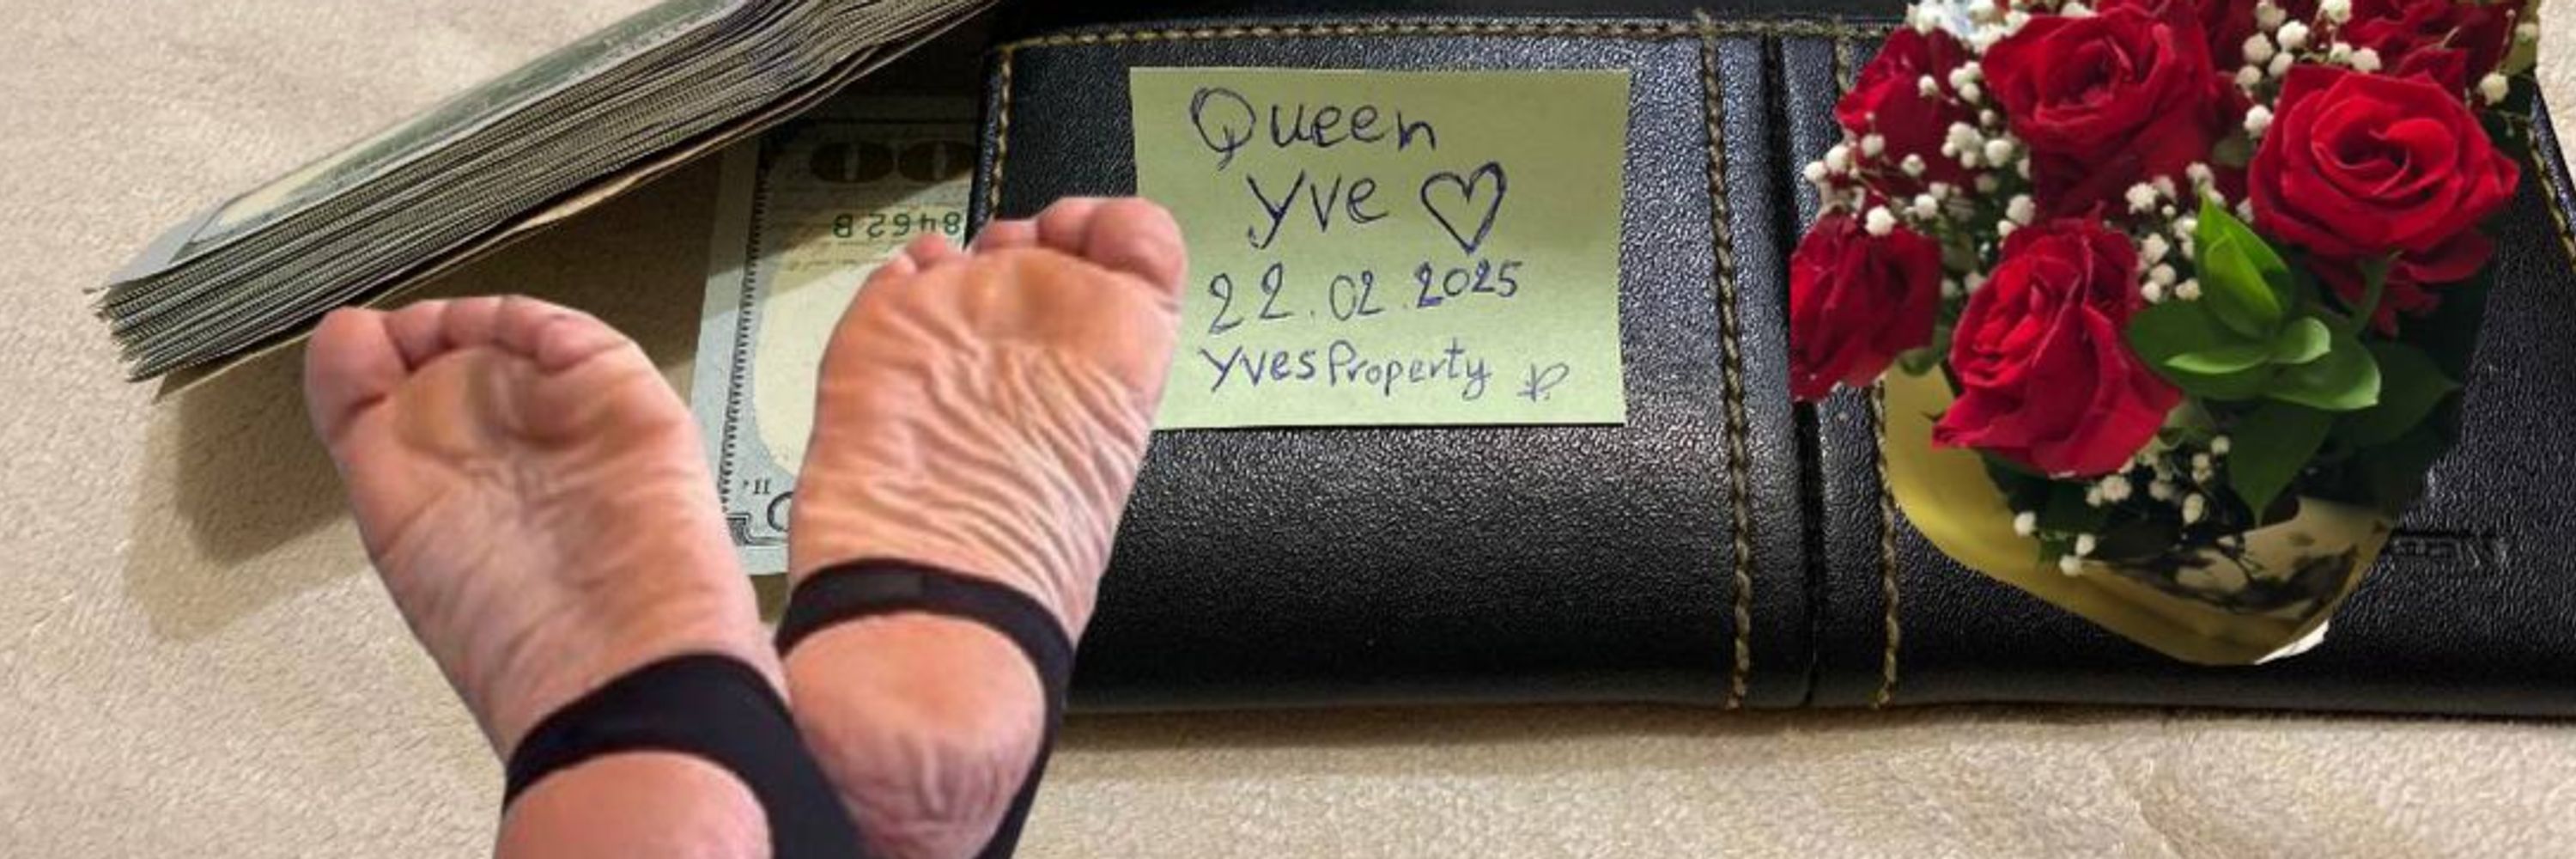 Queen
Yve ♡
22.02.2025
YvesProperty
8462 B